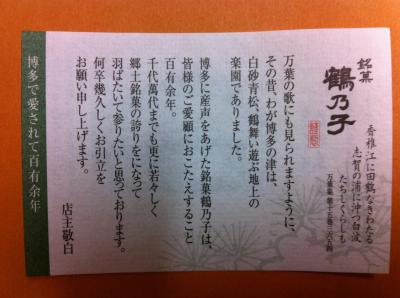 銘菓
鶴乃子
香椎江に田鶴なきわたる
志賀の浦に沖つ白波
たちしくらしも
万葉集 第十五巻三六五四
万葉の歌にも見られますように、
その昔、わが博多の津は、
白砂青松、鶴舞い遊ぶ地上の
楽園でありました。
博多に産声をあげた銘菓鶴乃子は、
皆様のご愛顧におこたえすること
百有余年。
千代萬代までも更に若々しく
郷土銘菓の誇りをになって
羽ばたいて参りたいと思っております。
何卒幾久しくお引立を
お願い申し上げます。
店主敬白
博多で愛されて百有余年